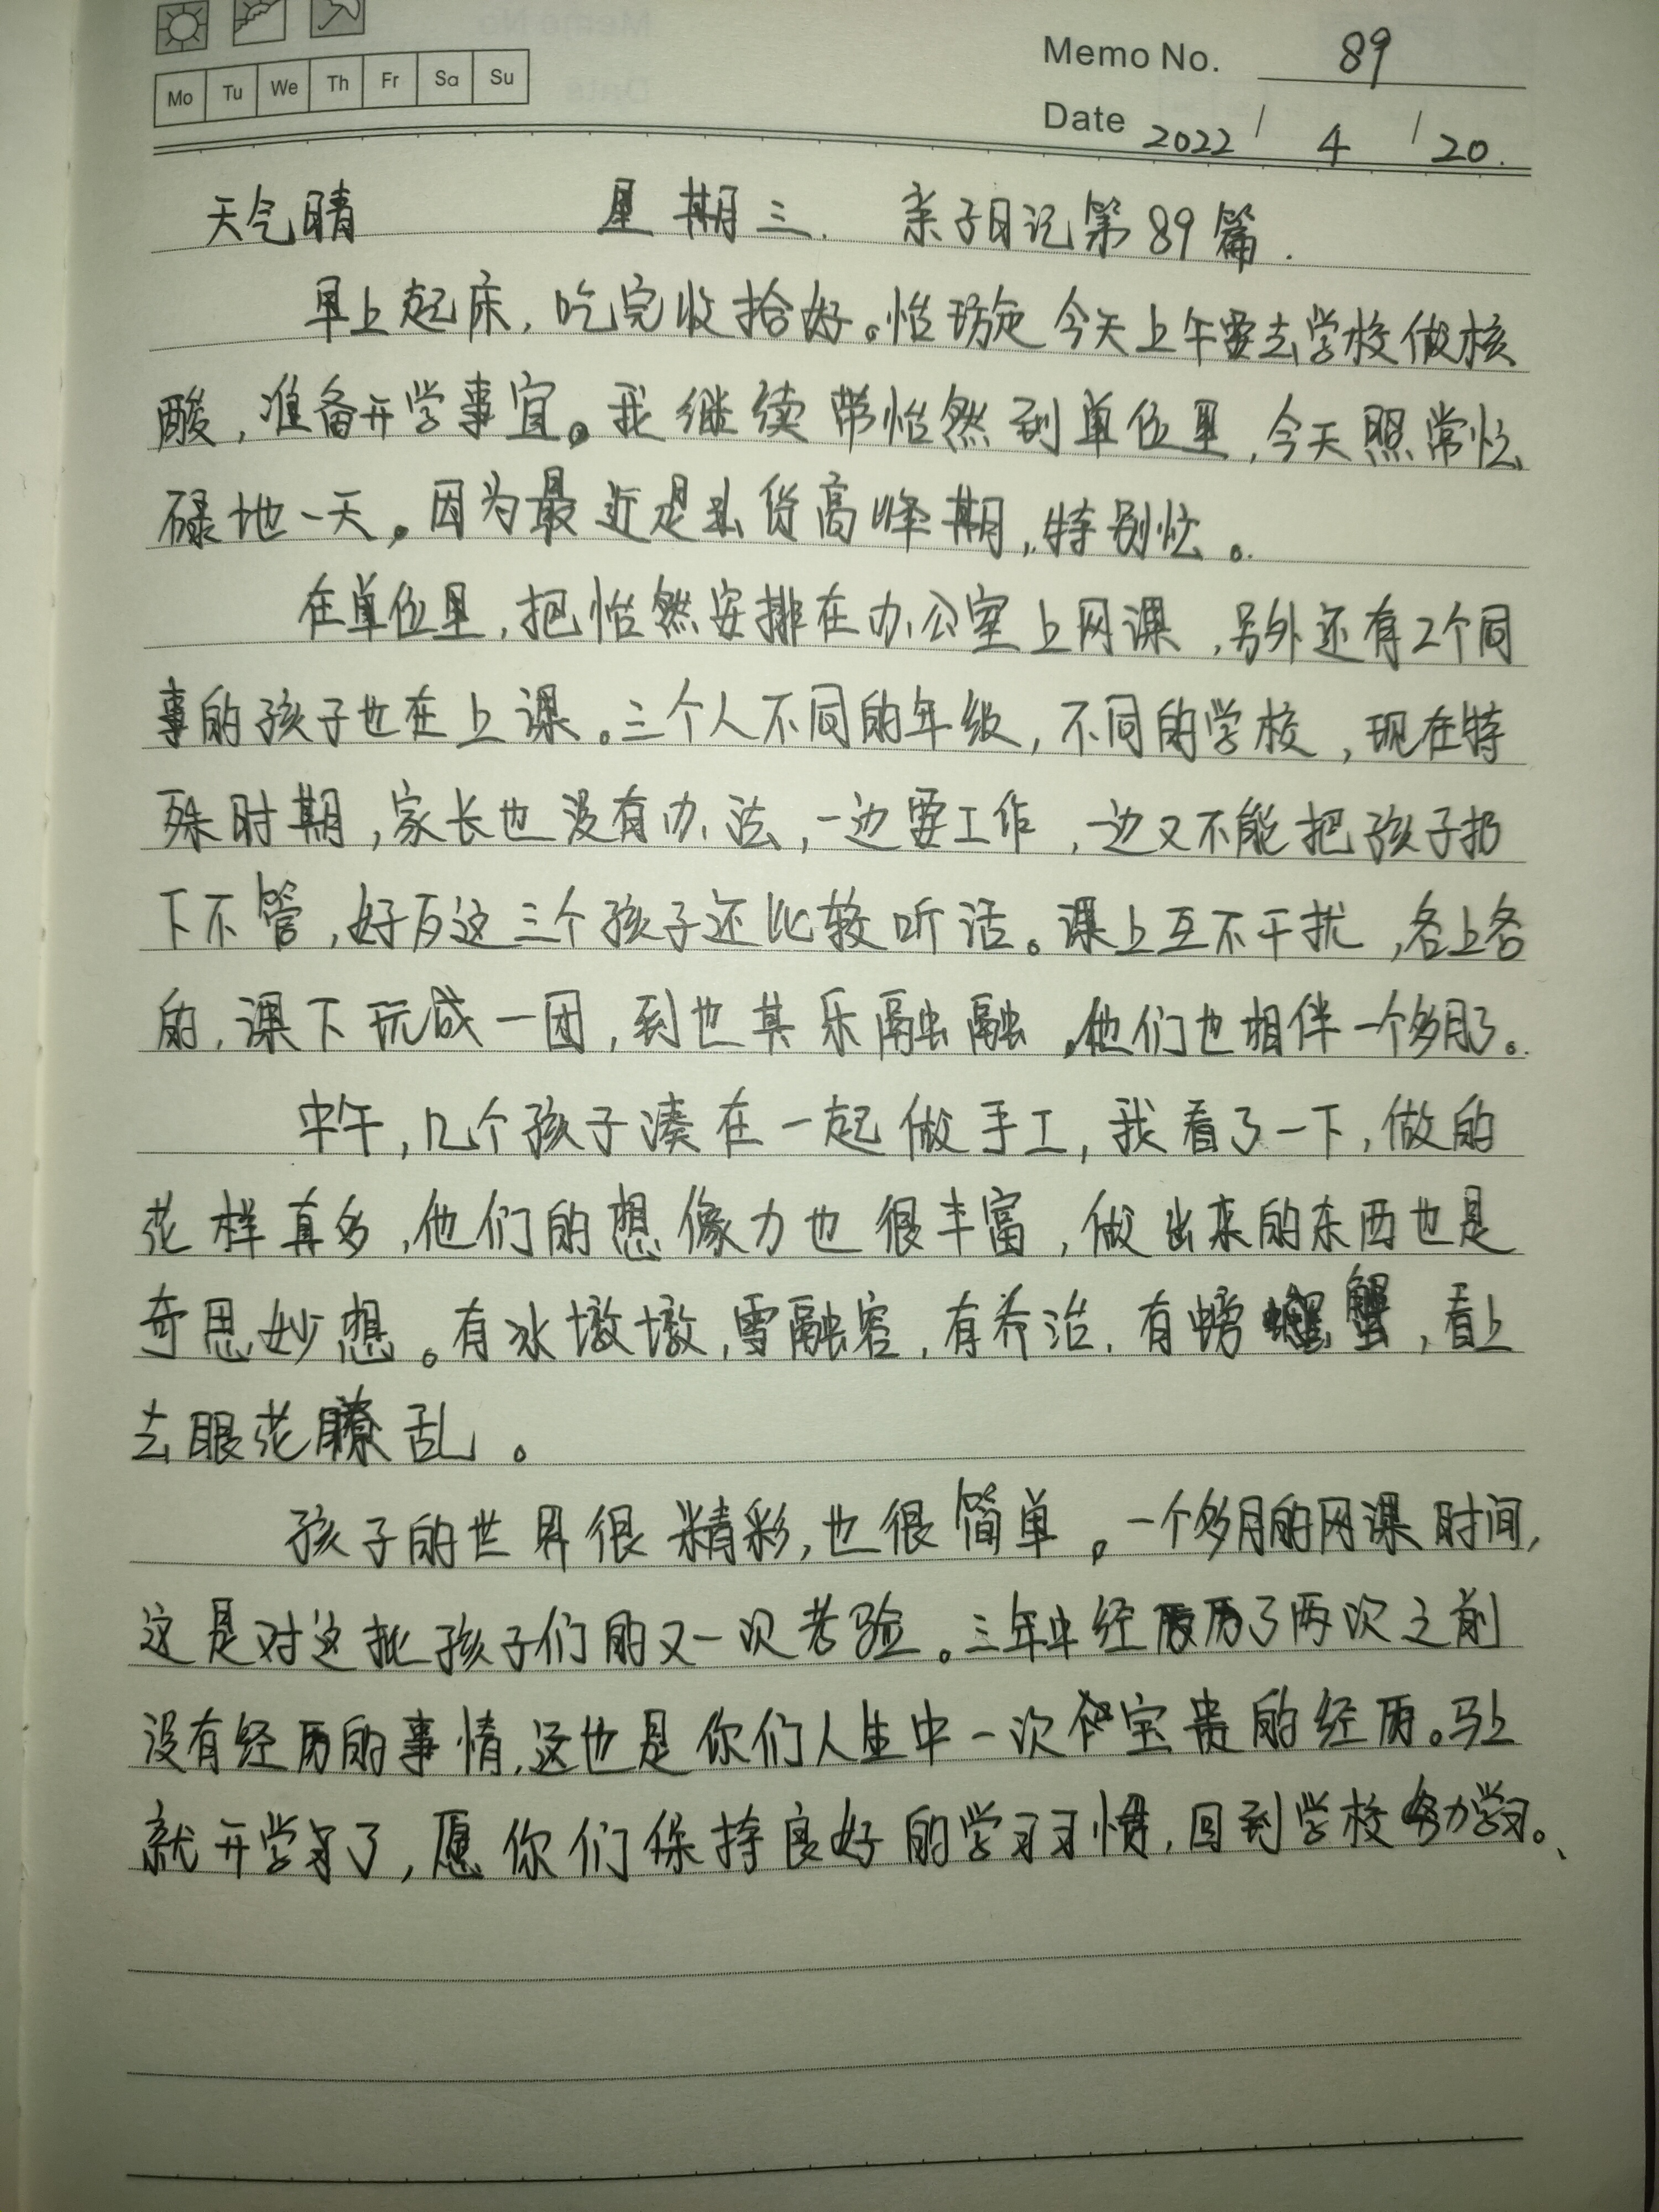 Memo No. 89
Mo Tu We Th Fr Sa Su
Date 2022 / 4 / 20.
天气晴 星期三. 亲子日记第89篇.
早上起床,吃完收拾好。怡 今天上午要去学校做核
酸,准备开学事宜。我继续带怡然到单位里,今天照常忙
碌地一天。因为最近是出货高峰期,特别忙。
在单位里,把怡然安排在办公室上网课,另外还有2个同
事的孩子也在上课。三个人不同的年级,不同的学校,现在特
殊时期,家长也没有办法,一边要工作,一边又不能把孩子扔
下不管,好歹这三个孩子还比较听话。课上互不干扰,各上各
的,课下玩成一团,到也其乐融融。他们也相伴一个多月了。
中午,几个孩子凑在一起做手工,我看了一下,做的
花样真多,他们的想像力也很丰富,做出来的东西也是
奇思妙想。有冰墩墩,雪融容,有乔治,有螃蟹,看上
去眼花瞭乱。
孩子的世界很精彩,也很简单。一个多月的网课时间,
这是对这批孩子们的又一次考验。三年中经历了两次之前
没有经历的事情,这也是你们人生中一次宝贵的经历。马上
就开学了,愿你们保持良好的学习习惯,回到学校努力学习。